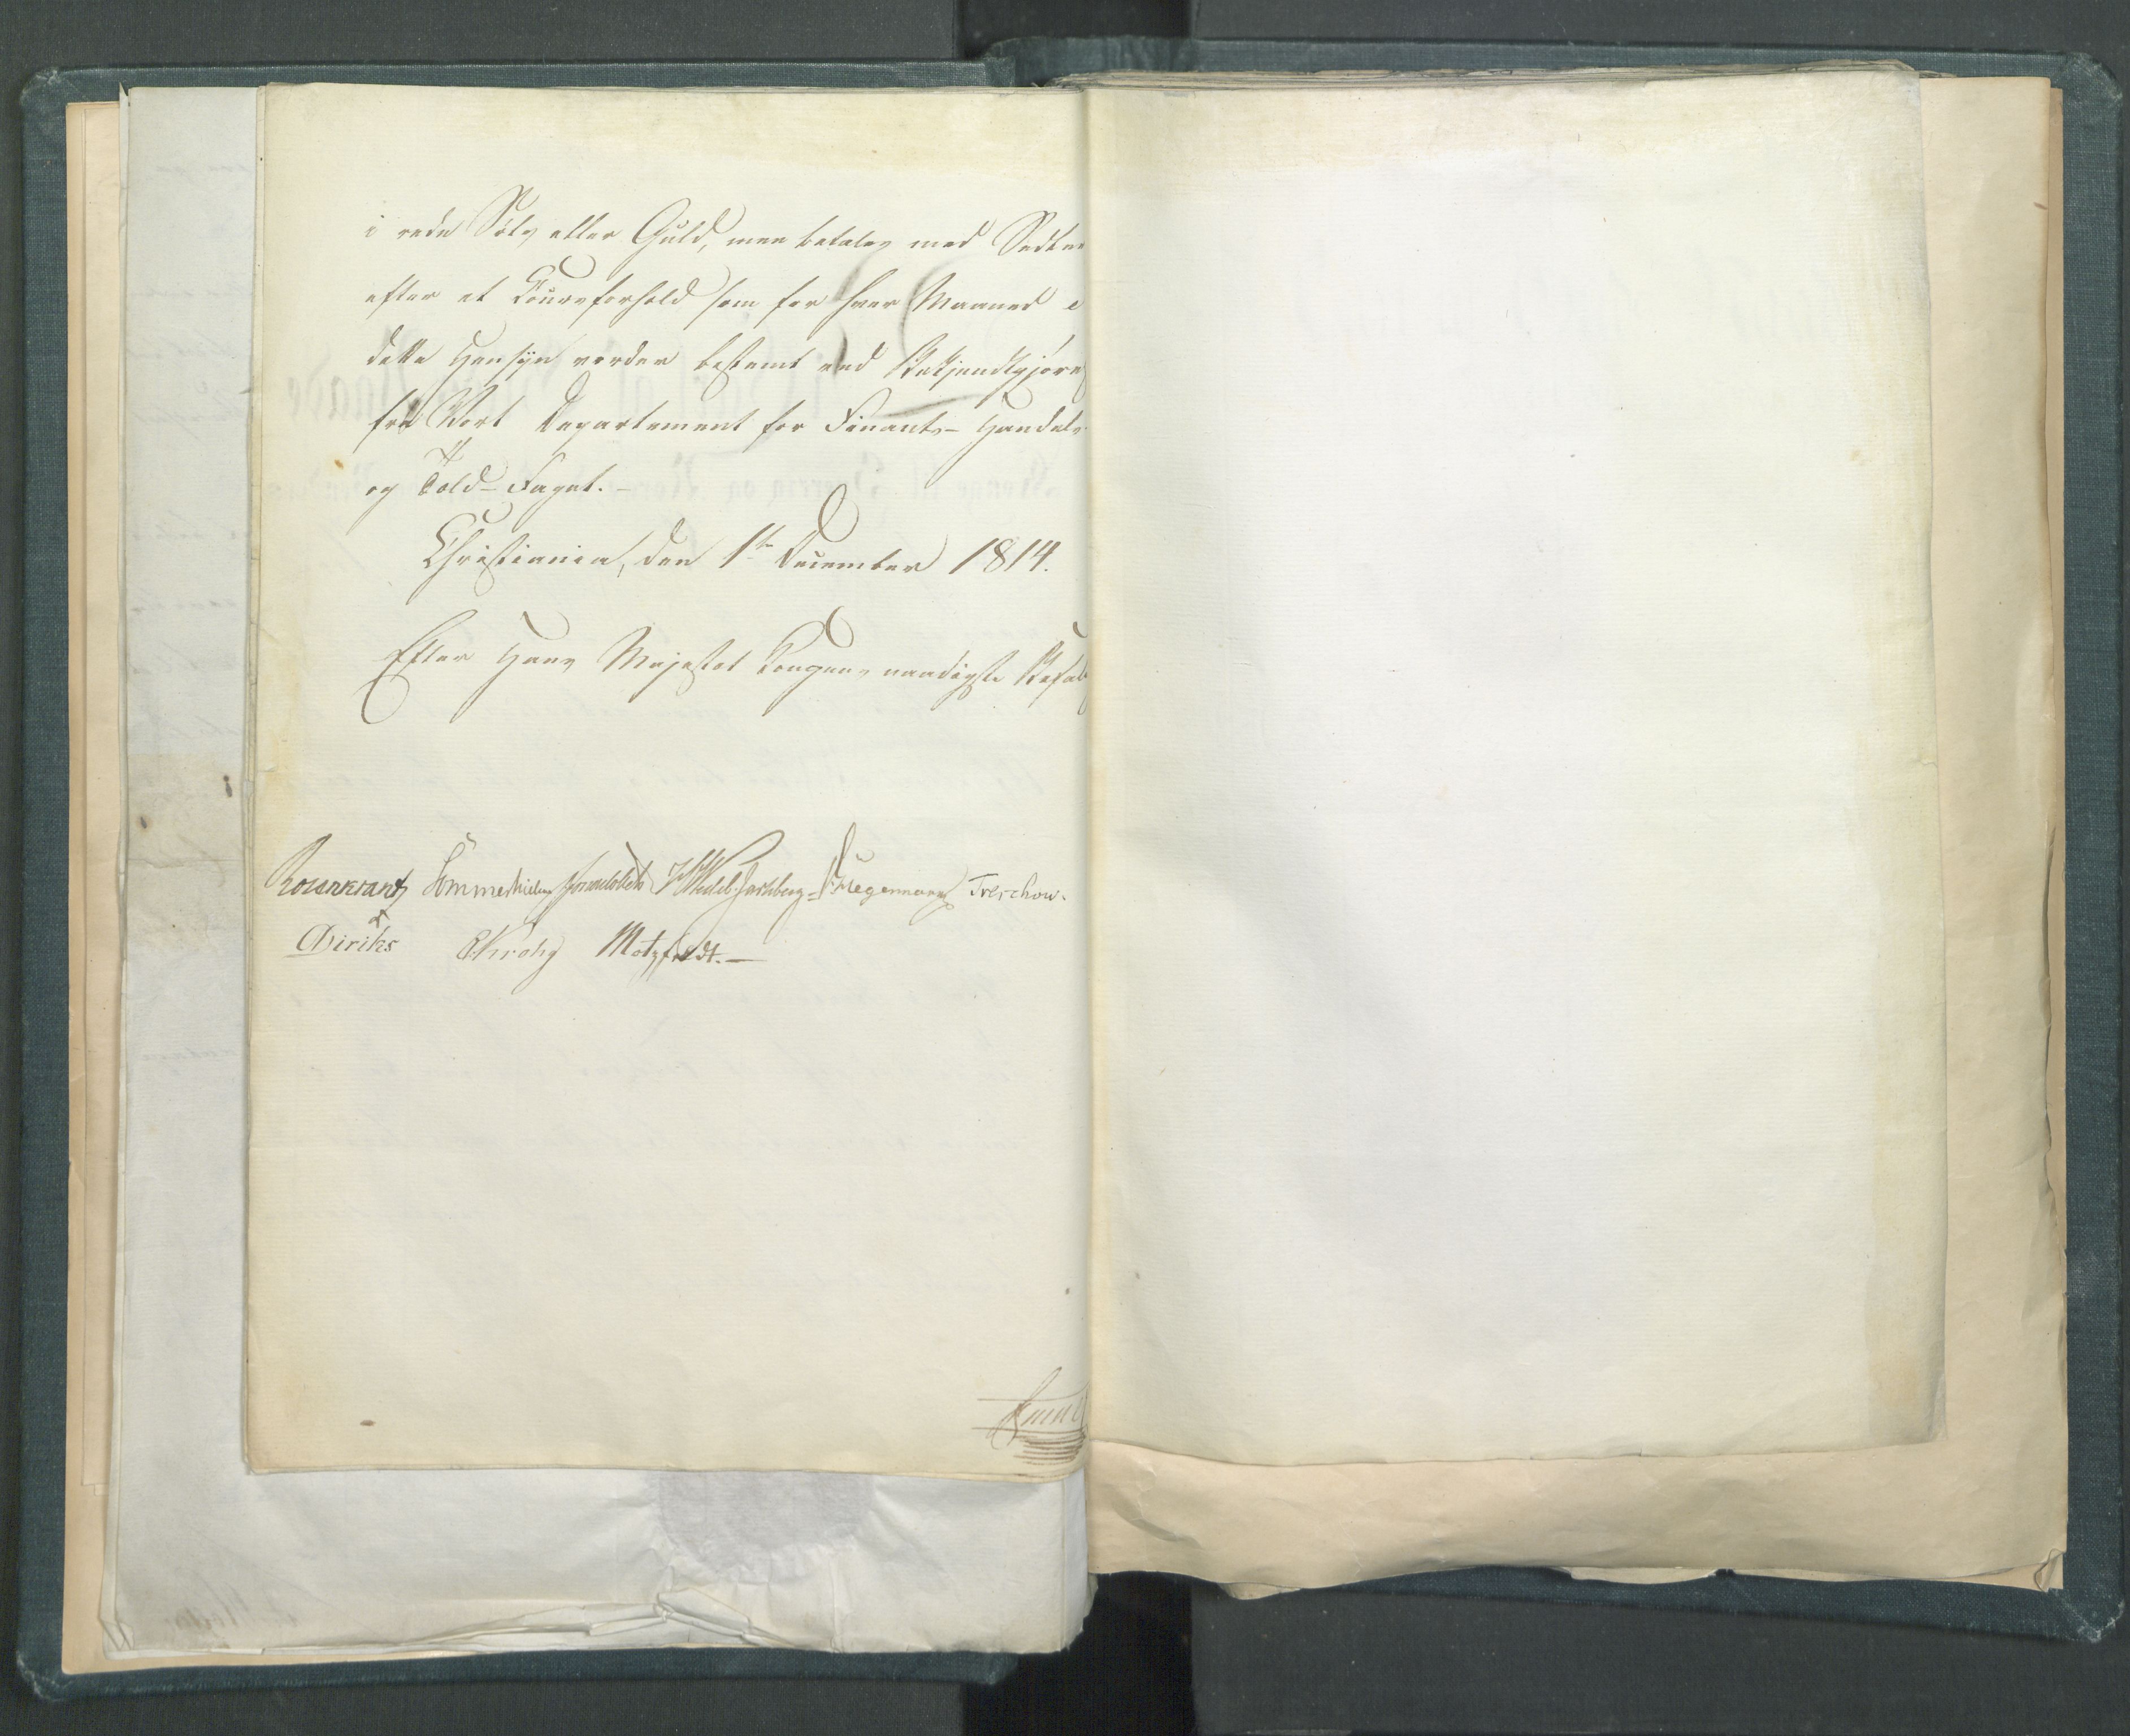 i rede Sølv eller Guld, men betales med Sedler
efter et Coursforhold som for hver Maaned i
dette Hensyn vorder bestemt ved Bekjendtgjørel
fra Vort Departement for Finants- Handels-
og Told-Faget. -
Christiania, den 1te December 1814.
Efter Hans Majestæt Kongens naadigste Befal
Rosenkrantz Sommerhielm HWedel-Jarlsberg - Hegermann Treschow.
Diriks CKrohg Motzfeldt. -